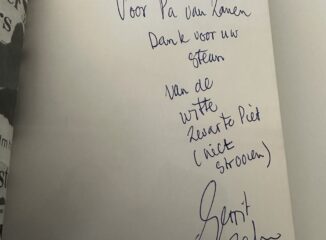 Voor Pa van Zanen
Dank voor uw
steun
van de
witte
Zwarte Piet
(niet
strooien)
Gerrit